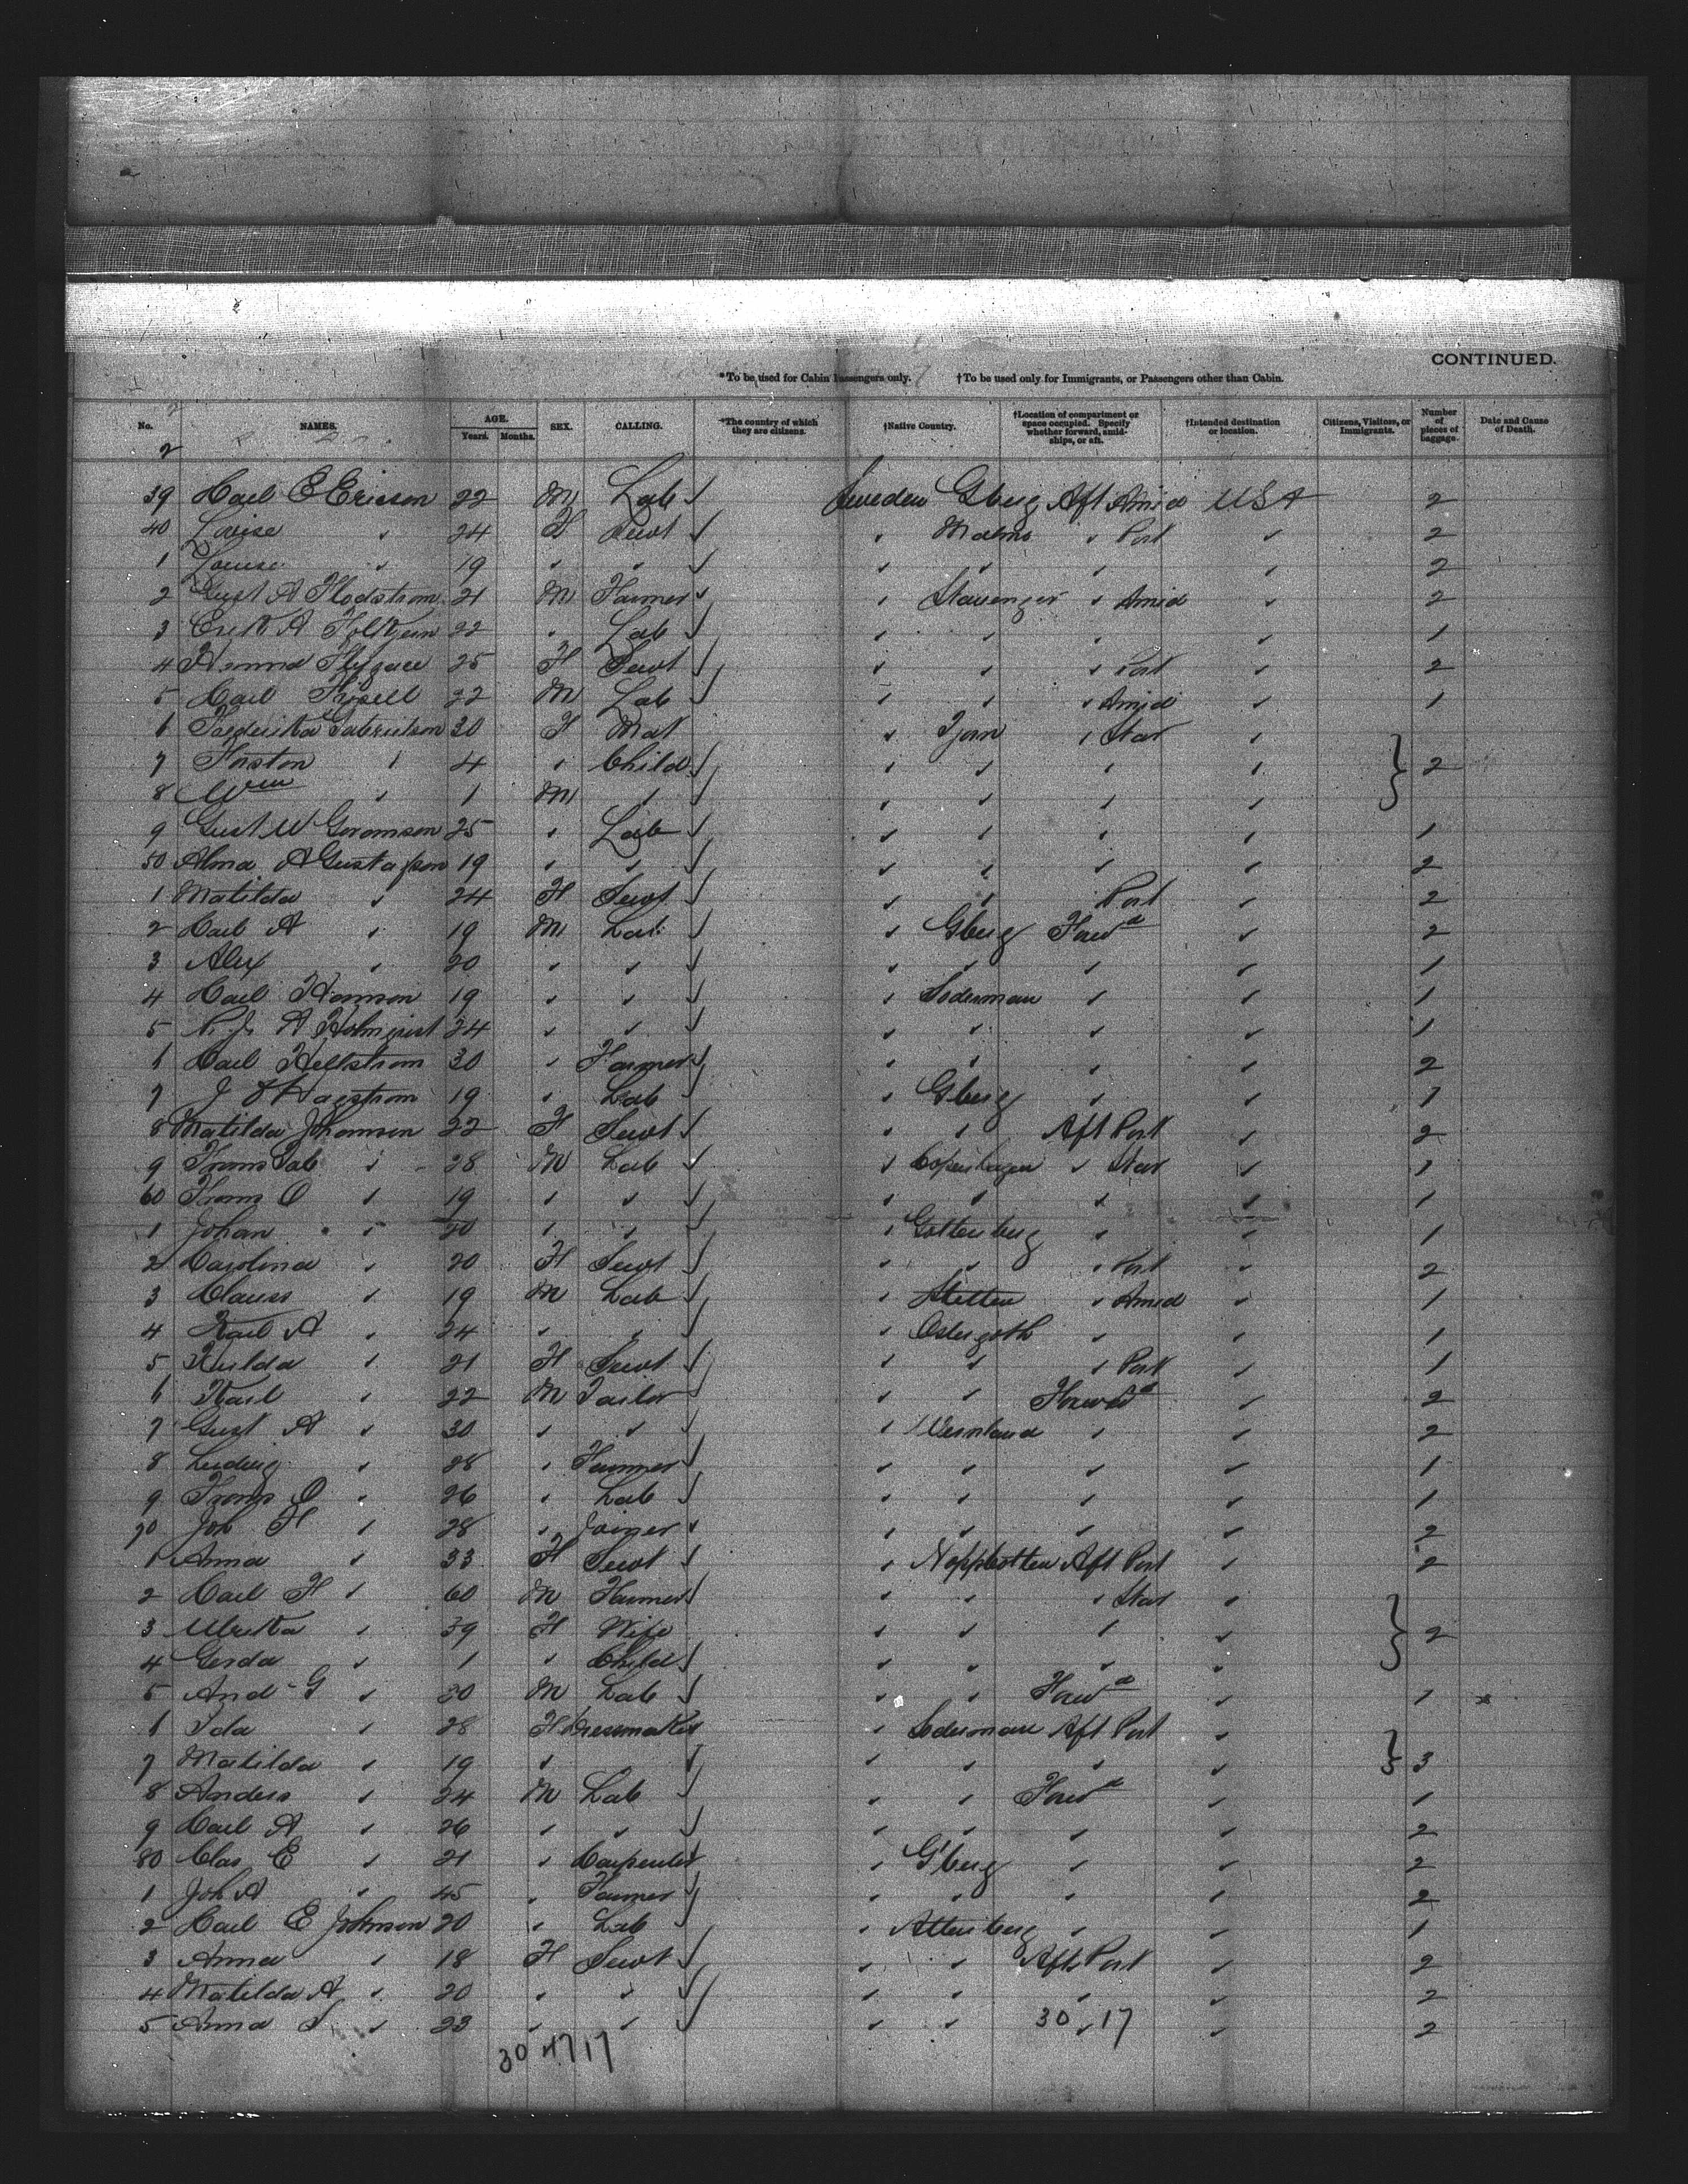 CONTINUED.
*To be used for Cabin Passengers only. †To be used only for Immigrants, or Passengers other than Cabin.
No. NAMES. AGE. Years. Months. SEX. CALLING. *The country of which they are citizens. †Native Country. †Location of compartment or space occupied. Specify whether forward, amidships, or aft. †Intended destination or location. Citizens, Visitors, or Immigrants. Number of pieces of baggage. Date and Cause of Death.
2
39 Carl E Ericson 22 M Lab Sweden Gberg Aft Amid USA 2
40 Lovise " 24 F Servt " Malmo " Port " 2
1 Louise " 19 " " " " " " 2
2 Gust A Flodstrom 21 M Farmer " Stavenger " Amid " 2
3 Erik A 22 " Lab " " " " 1
4 Hanna 25 F Servt " " " Port " 2
5 Carl 22 M Lab " " " Amid " 1
6 Frederika Gabrielson 30 F Mat " " Star "
7 " 4 " Child " " " " 2
8 Wm " 1 M " " " " "
9 Gust W 25 " Lab " " " " 1
50 Alma A Gustafson 19 " " " " " " 2
1 Matilda " 24 F Servt " " Port " 2
2 Carl A " 19 M Lab " Gberg Forwd " 2
3 Alex " 20 " " " " " " 1
4 Carl Hanson 19 " " " Soderman " " 1
5 A Holmquist 24 " " " " " " 1
6 Carl Hellstrom 30 " Farmer " " " " 2
7 J Hagstrom 19 " Lab " Gberg " " 1
8 Matilda Johanson 22 F Servt " " Aft Port " 2
9 Frans " 28 M Lab " Copenhagen " Star " 1
60 Frans O " 19 " " " " " " 1
1 Johan " 20 " " " Gottenberg " " 1
2 Carolina " 20 F Servt " " " Port " 2
3 Clauss " 19 M Lab " Stettin " Amid " 1
4 Karl A " 24 " " " Ostergoth " " 1
5 Hulda " 21 F Servt " " " Port " 1
6 Karl " 22 M Tailor " " Forwd " 2
7 Gust A " 30 " " " Wermland " " 2
8 Ludwig " 28 " Farmer " " " " 1
9 Frans O " 26 " Lab " " " " 1
70 Joh F " 28 " Joiner " " " " 2
1 Anna " 33 F Servt " Aft Port " 2
2 Carl F " 60 M Farmer " " " Star "
3 Ulrika " 39 F Wife " " " " 2
4 Gerda " 1 " Child " " " "
5 And G " 30 M Lab " " Forwd " 1
6 Ida " 28 F Dressmaker " Soderman Aft Port "
7 Matilda " 19 " " " " " 3
8 Anders " 24 M Lab " " Forwd " 1
9 Carl A " 26 " " " " " " 2
80 Clas E " 21 " Carpenter " G'berg " " 2
1 Joh A " 45 " Farmer " " " " 2
2 Carl E Johnson 20 " Lab " " " 1
3 Anna " 18 F Servt " " Aft Port " 2
4 Matilda A " 20 " " " " " " 2
5 Anna S " 23 " " " " " " 2
30 17
30 17 17